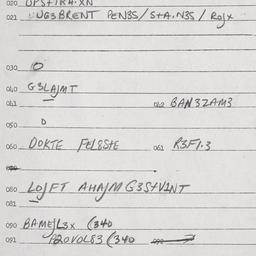 020 OPSTIRA.XN
021 UG3BRENT PEN3S/STA.N3S/ROJX
030 O
040 G3LAJMT
041
042 BAN32AM3
050 O
060 DOKTE FEL8StE
061 R3F1.3
080 LOJFT AHAJM G3StVINT
081
090 BAMEJL3X (340
091 P20VOL83 (340